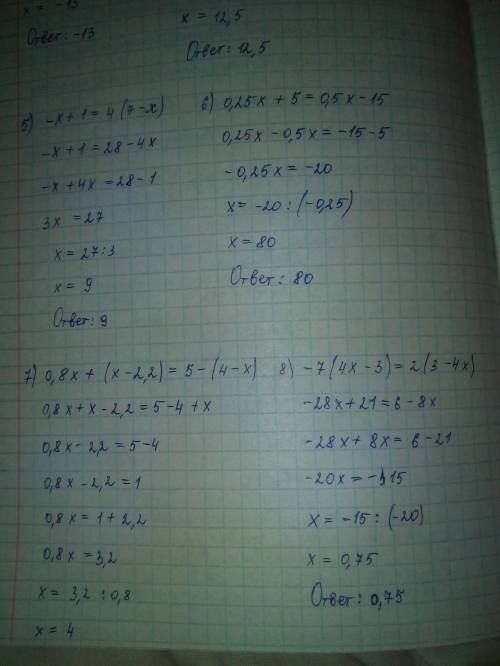 x = -13
Ответ: -13
x = 12,5
Ответ: 12,5
5) -x + 1 = 4 (7-x)
-x + 1 = 28 - 4x
-x + 4x = 28 - 1
3x = 27
x = 27:3
x = 9
Ответ: 9
6) 0,25x + 5 = 0,5x - 15
0,25x - 0,5x = -15 - 5
-0,25x = -20
x = -20 : (-0,25)
x = 80
Ответ: 80
7) 0,8x + (x - 2,2) = 5 - (4 - x)
0,8x + x - 2,2 = 5 - 4 + x
0,8x - 2,2 = 5 - 4
0,8x - 2,2 = 1
0,8x = 1 + 2,2
0,8x = 3,2
x = 3,2 : 0,8
x = 4
8) -7 (4x - 3) = 2 (3 - 4x)
-28x + 21 = 6 - 8x
-28x + 8x = 6 - 21
-20x = -15
x = -15 : (-20)
x = 0,75
Ответ: 0,75